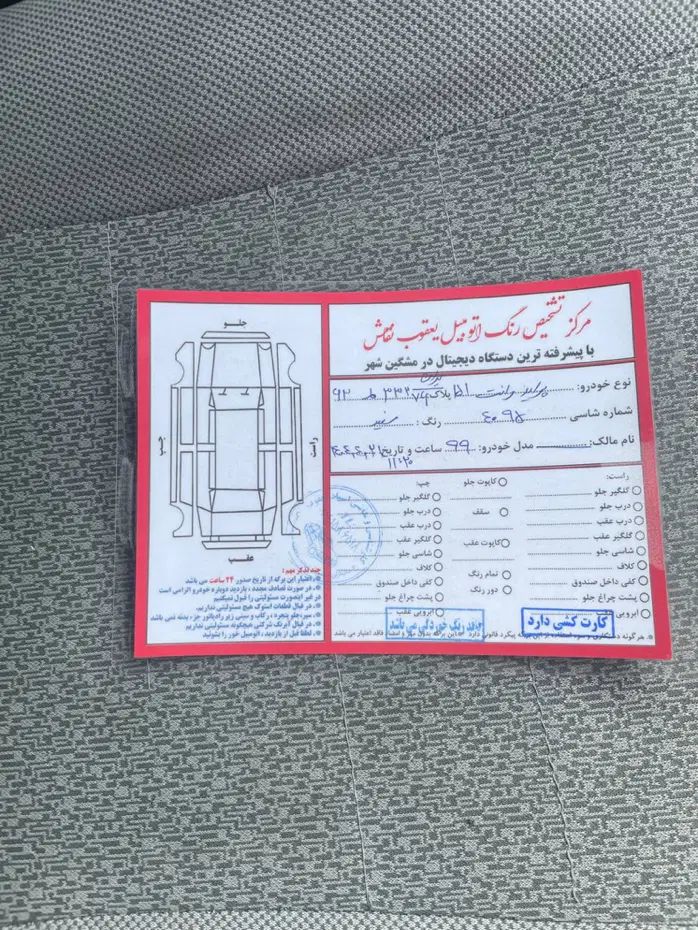 مرکز تشخیص رنگ اتومبیل یعقوب نقاش
با پیشرفته ترین دستگاه دیجیتال در مشگین شهر
نوع خودرو: پراید وانت ۱۵۱ پلاک
شماره شاسی رنگ: سفید
نام مالک: مدل خودرو: ۹۹ ساعت و تاریخ
۱۱:۲۰
راست:
گلگیر جلو
درب جلو
درب عقب
گلگیر عقب
شاسی جلو
کلاف
کفی داخل صندوق
پشت چراغ جلو
ابرویی
کاپوت جلو
سقف
کاپوت عقب
تمام رنگ
دور رنگ
چپ:
گلگیر جلو
درب جلو
درب عقب
گلگیر عقب
شاسی جلو
کلاف
کفی داخل صندوق
پشت چراغ جلو
ابرویی عقب
کارت کشی دارد
فاقد رنگ خوردگی می باشد
جلو
چپ
راست
عقب
چند تذکر مهم:
اعتبار این برگه از تاریخ صدور ۲۴ ساعت می باشد
در صورت تصادف مجدد، بازدید دوباره خودرو الزامی است
در غیر اینصورت مسئولیتی را قبول نمیکنیم
در قبال قطعات استوک هیچ مسئولیتی نداریم.
سپر، جلو پنجره، رکاب و سینی زیر رادیاتور جزء بدنه نمی باشد
در قبال آبرنگ شرکتی هیچگونه مسئولیتی نداریم
لطفا قبل از بازدید، اتومبیل خود را بشوئید